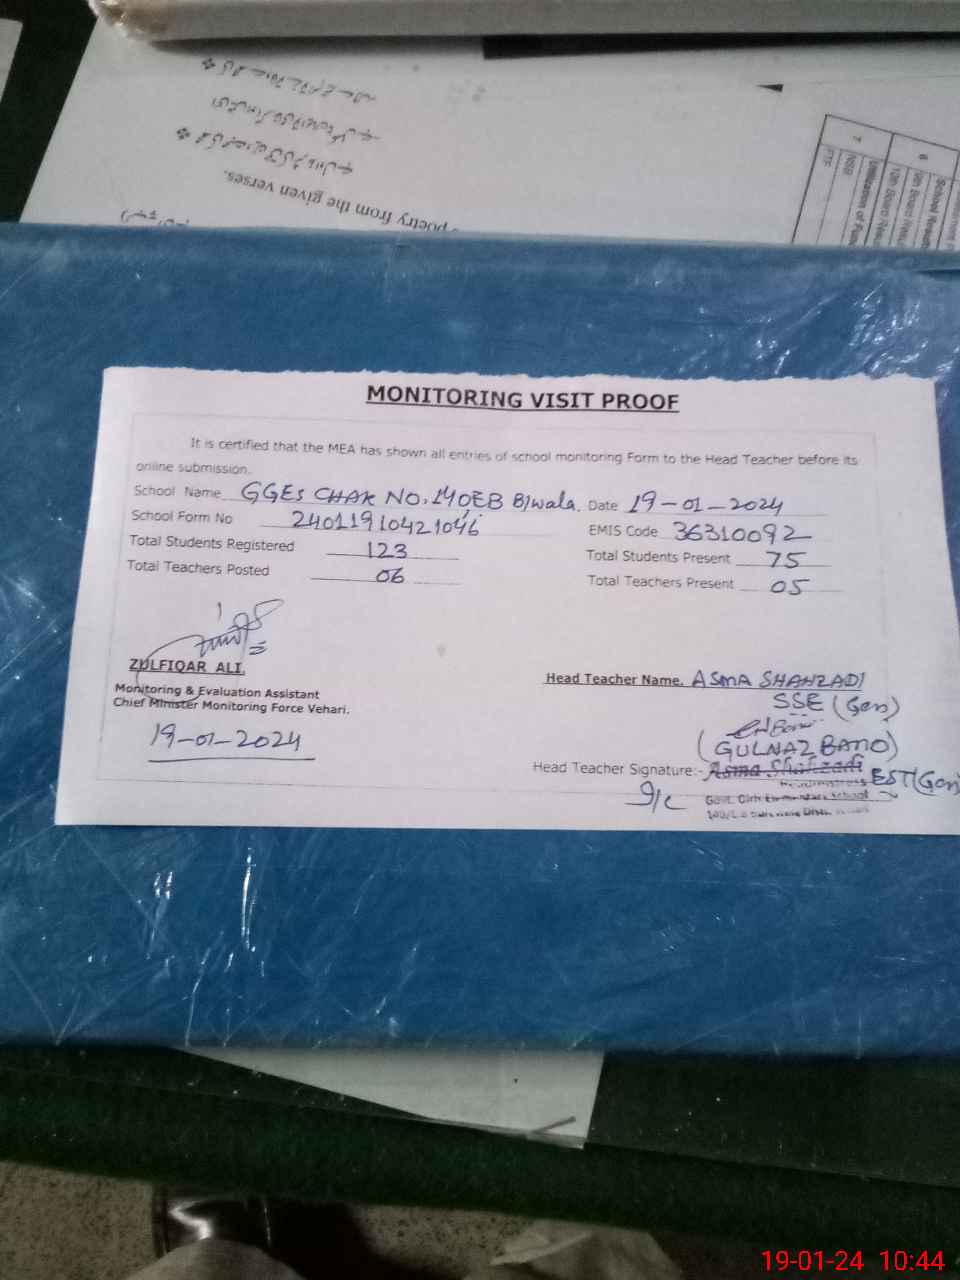 poetry from the given verses.
7
6
PTF
NSB
Utilization of Fun
10th Board Re
9th Board Re
School Resul
MONITORING VISIT PROOF
It is certified that the MEA has shown all entries of school monitoring Form to the Head Teacher before its
online submission.
School Name GGES CHAK NO. 140EB B/wala. Date 19-01-2024
School Form No 24011910421046 EMIS Code 36310092
Total Students Registered 123 Total Students Present 75
Total Teachers Posted 06 Total Teachers Present 05
ZULFIQAR ALI.
Monitoring & Evaluation Assistant
Chief Minister Monitoring Force Vehari.
19-01-2024
Head Teacher Name. ASMA SHAHZADI
SSE (Gen)
(GULNAZ BANO)
Head Teacher Signature:- Asma Shahzadi EST (Gen)
I/C
Headmistress
Govt. Girls Elementary School
19-01-24 10:44